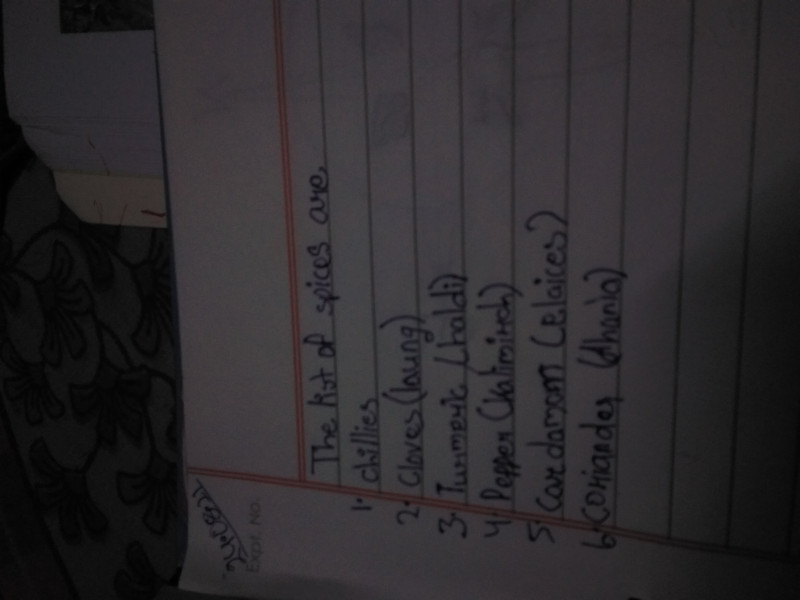 Expt. No.
The list of spices are.
1. chillies
2. Cloves (laung)
3. Turmeric (haldi)
4. Pepper (kalimirch)
5. Cardamom (elaices)
6. coriander (dhania)